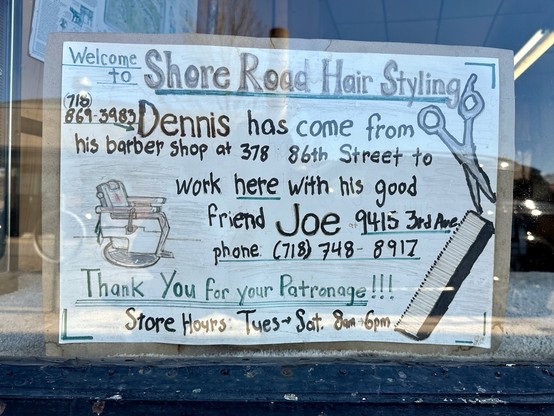 Welcome to Shore Road Hair Styling
(718) 869-3983
Dennis has come from
his barber shop at 378 86th Street to
work here with his good
friend Joe 9415 3rd Ave.
phone: (718) 748-8917
Thank You for your Patronage!!!
Store Hours: Tues→Sat. 8am→6pm